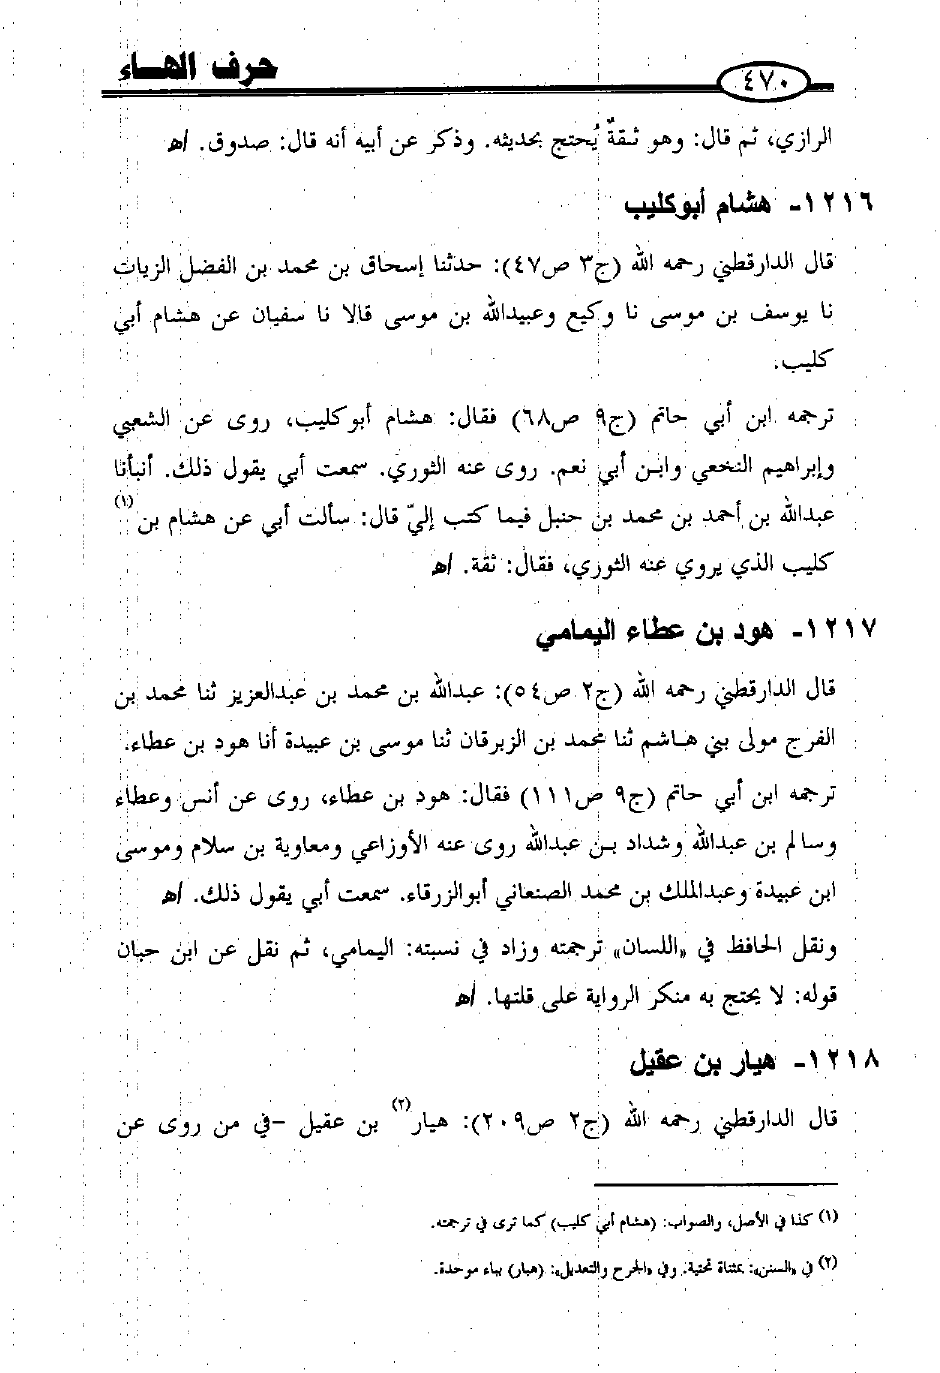 حرف الهاء
٤٧٠
الرازي، ثم قال: وهو ثقةٌ يُحتج بحديثه. وذكر عن أبيه أنه قال: صدوق. اﻫ
١٢١٦- هشام أبوكليب
قال الدارقطني رحمه الله (ج٣ ص٤٧): حدثنا إسحاق بن محمد بن الفضل الزيات
نا يوسف بن موسى نا وكيع وعبيدالله بن موسى قالا نا سفيان عن هشام أبي
كليب.
ترجمه ابن أبي حاتم (ج٩ ص٦٨) فقال: هشام أبوكليب، روى عن الشعبي
وإبراهيم النخعي وابن أبي نعم. روى عنه الثوري. سمعت أبي يقول ذلك. أنبأنا
عبدالله بن أحمد بن محمد بن حنبل فيما كتب إليّ قال: سألت أبي عن هشام بن(١)
كليب الذي يروي عنه الثوري، فقال: ثقة. اﻫ
١٢١٧- هود بن عطاء اليمامي
قال الدارقطني رحمه الله (ج٢ ص٥٤): عبدالله بن محمد بن عبدالعزيز ثنا محمد بن
الفرج مولى بني هاشم ثنا محمد بن الزبرقان ثنا موسى بن عبيدة أنا هود بن عطاء.
ترجمه ابن أبي حاتم (ج٩ ص١١١) فقال: هود بن عطاء، روى عن أنس وعطاء
وسالم بن عبدالله وشداد بن عبدالله روى عنه الأوزاعي ومعاوية بن سلام وموسى
ابن عبيدة وعبدالملك بن محمد الصنعاني أبوالزرقاء. سمعت أبي يقول ذلك. اﻫ
ونقل الحافظ في «اللسان» ترجمته وزاد في نسبته: اليمامي، ثم نقل عن ابن حبان
قوله: لا يحتج به منكر الرواية على قلتها. اﻫ
١٢١٨- هيار بن عقيل
قال الدارقطني رحمه الله (ج٢ ص٢٠٩): هيار(٢) بن عقيل -في من روى عن
(١) كذا في الأصل، والصواب: (هشام أبي كليب) كما ترى في ترجمته.
(٢) في «السنن»: بمثناة تحتية. وفي «الجرح والتعديل»: (هبار) بباء موحدة.